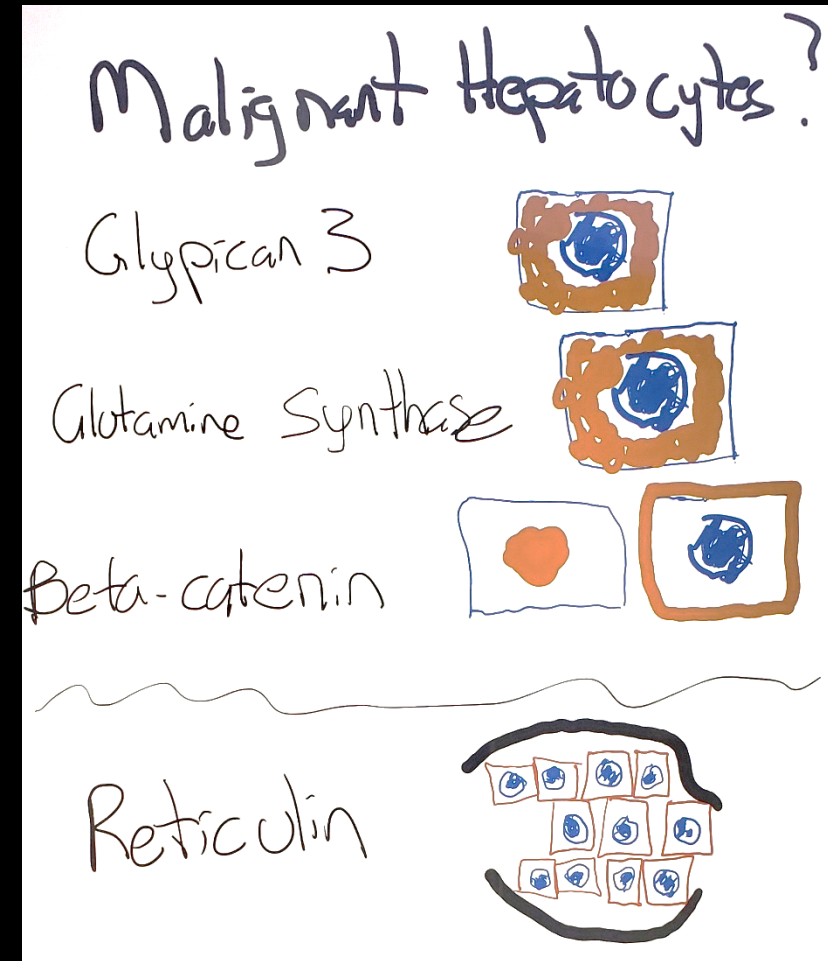 Malignant Hepatocytes?
Glypican 3
Glutamine Synthase
Beta-catenin
Reticulin